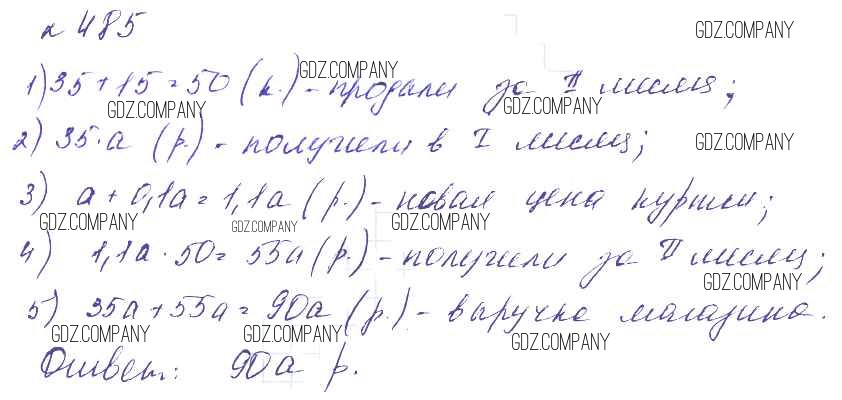 № 485 GDZ.COMPANY
1) 35 + 15 = 50 (к.) - продали за II месяц;
GDZ.COMPANY GDZ.COMPANY GDZ.COMPANY
2) 35 · a (р.) - получили в I месяц; GDZ.COMPANY
3) a + 0,1a = 1,1a (р.) - новая цена куртки;
GDZ.COMPANY GDZ.COMPANY GDZ.COMPANY
4) 1,1a · 50 = 55a (р.) - получили за II месяц;
GDZ.COMPANY
5) 35a + 55a = 90a (р.) - выручка магазина.
GDZ.COMPANY GDZ.COMPANY GDZ.COMPANY
Ответ: 90a р.